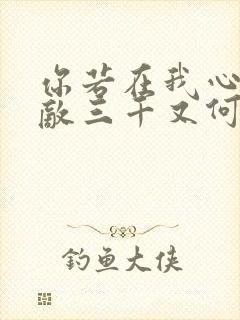 你若在我心
敌三千又何
钓鱼大侠